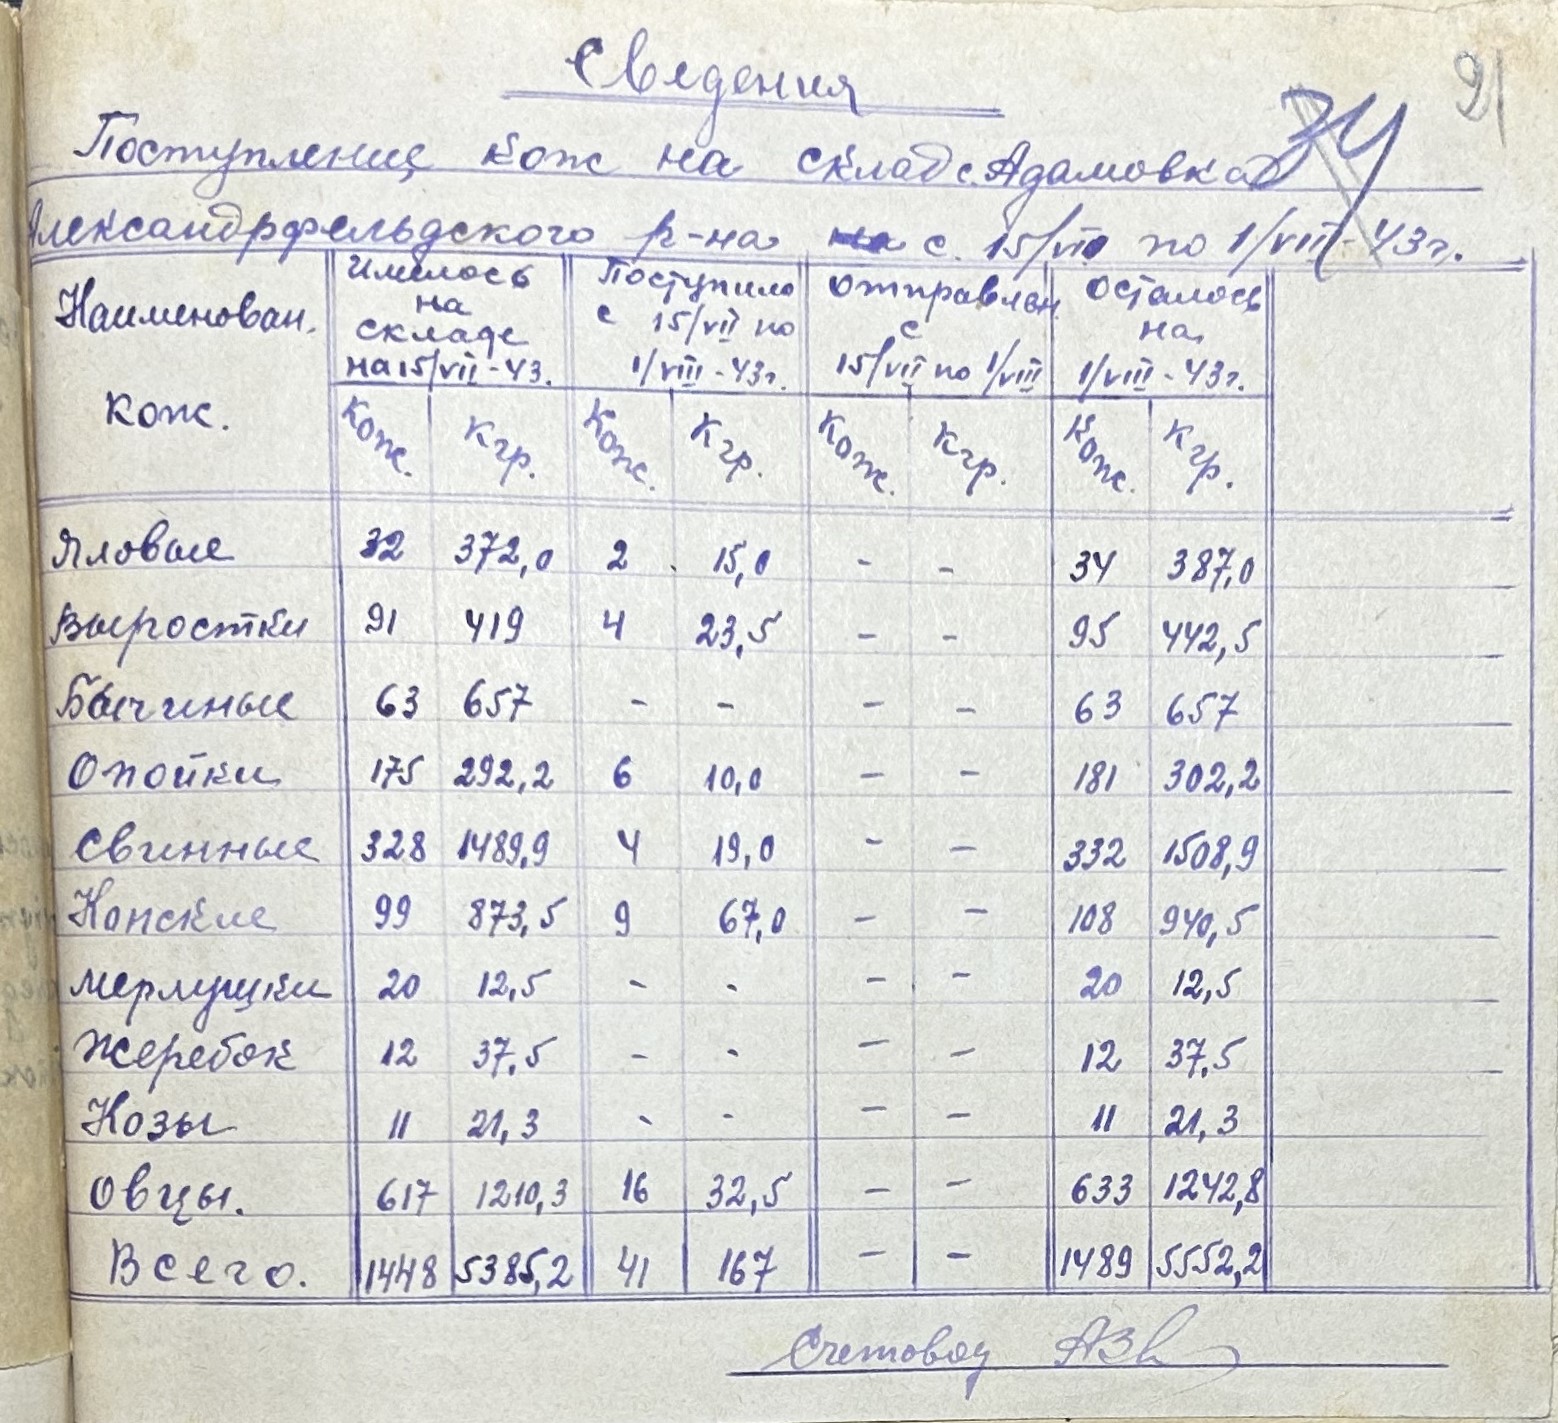 91
34
Сведения
Поступление кож на склад с. Адамовка
Александрфельдского р-на с 15/VII по 1/VIII-43 г.
Наименован. кож. | Имелось на складе на 15/VII-43. | Поступило с 15/VII по 1/VIII-43 г. | Отправлен с 15/VII по 1/VIII | Осталось на 1/VIII-43 г.
Кож. | Кгр. | Кож. | Кгр. | Кож. | Кгр. | Кож. | Кгр.
Яловые | 32 | 372,0 | 2 | 15,0 | - | - | 34 | 387,0
Выростки | 91 | 419 | 4 | 23,5 | - | - | 95 | 442,5
Бычиные | 63 | 657 | - | - | - | - | 63 | 657
Опойки | 175 | 292,2 | 6 | 10,0 | - | - | 181 | 302,2
Свинные | 328 | 1489,9 | 4 | 19,0 | - | - | 332 | 1508,9
Конские | 99 | 873,5 | 9 | 67,0 | - | - | 108 | 940,5
Мерлушки | 20 | 12,5 | - | - | - | - | 20 | 12,5
Жеребок | 12 | 37,5 | - | - | - | - | 12 | 37,5
Козы | 11 | 21,3 | - | - | - | - | 11 | 21,3
Овцы. | 617 | 1210,3 | 16 | 32,5 | - | - | 633 | 1242,8
Всего. | 1448 | 5385,2 | 41 | 167 | - | - | 1489 | 5552,2
Счетовод